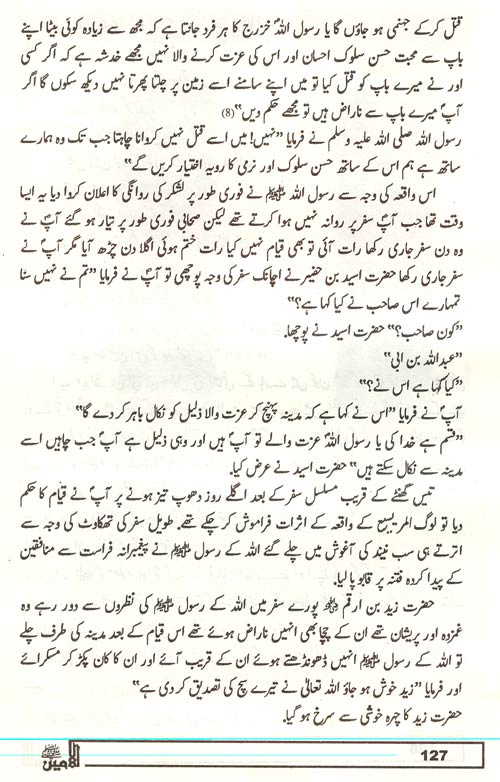 قتل کرکے جہنمی ہو جاؤں گا یا رسول اللہؐ خزرج کا ہر فرد جانتا ہے کہ مجھ سے زیادہ کوئی بیٹا اپنے
باپ سے محبت حسن سلوک احسان اور اس کی عزت کرنے والا نہیں مجھے خدشہ ہے کہ اگر کسی
اور نے میرے باپ کو قتل کیا تو میں اپنے سامنے اسے زمین پر چلتا پھرتا نہیں دیکھ سکوں گا اگر
آپؐ میرے باپ سے ناراض ہیں تو مجھے حکم دیں“(8)
رسول اللہ صلی اللہ علیہ وسلم نے فرمایا ”نہیں! میں اسے قتل نہیں کروانا چاہتا جب تک وہ ہمارے
ساتھ ہے ہم اس کے ساتھ حسن سلوک اور نرمی کا رویہ اختیار کریں گے“
اس واقعہ کی وجہ سے رسول اللہ ﷺ نے فوری طور پر لشکر کی روانگی کا اعلان کروا دیا یہ ایسا
وقت تھا جب آپؐ سفر پر روانہ نہیں ہوا کرتے تھے لیکن صحابی فوری طور پر تیار ہو گئے آپؐ نے
وہ دن سفر جاری رکھا رات آئی تو بھی قیام نہیں کیا رات ختم ہوئی اگلا دن چڑھ آیا مگر آپؐ نے
سفر جاری رکھا حضرت اسید بن حضیر نے اچانک سفر کی وجہ پوچھی تو آپؐ نے فرمایا ”تم نے نہیں سنا
تمہارے اس صاحب نے کیا کہا ہے؟“
”کون صاحب؟“ حضرت اسید نے پوچھا۔
”عبداللہ بن ابی“
”کیا کہا ہے اس نے؟“
آپؐ نے فرمایا ”اس نے کہا ہے کہ مدینہ پہنچ کر عزت والا ذلیل کو نکال باہر کر دے گا“
”قسم ہے خدا کی یا رسول اللہؐ عزت والے تو آپؐ ہیں اور وہی ذلیل ہے آپؐ جب چاہیں اسے
مدینہ سے نکال سکتے ہیں“ حضرت اسید نے عرض کیا۔
تیس گھنٹے کے قریب مسلسل سفر کے بعد اگلے روز دھوپ تیز ہونے پر آپؐ نے قیام کا حکم
دیا تو لوگ المریسیع کے واقعہ کے اثرات فراموش کر چکے تھے۔ طویل سفر کی تھکاوٹ کی وجہ سے
اترتے ہی سب نیند کی آغوش میں چلے گئے اللہ کے رسول ﷺ نے پیغمبرانہ فراست سے منافقین
کے پیدا کردہ فتنہ پر قابو پا لیا۔
حضرت زید بن ارقم ؓ پورے سفر میں اللہ کے رسول ﷺ کی نظروں سے دور رہے وہ
غمزدہ اور پریشان تھے ان کے چچا بھی انہیں ناراض ہوئے تھے اس قیام کے بعد مدینہ کی طرف چلے
تو اللہ کے رسول ﷺ انہیں ڈھونڈھتے ہوئے ان کے قریب آئے اور ان کا کان پکڑ کر مسکرائے
اور فرمایا ”زید خوش ہو جاؤ اللہ تعالیٰ نے تیرے سچ کی تصدیق کر دی ہے“
حضرت زید کا چہرہ خوشی سے سرخ ہو گیا۔
الامین ﷺ
127